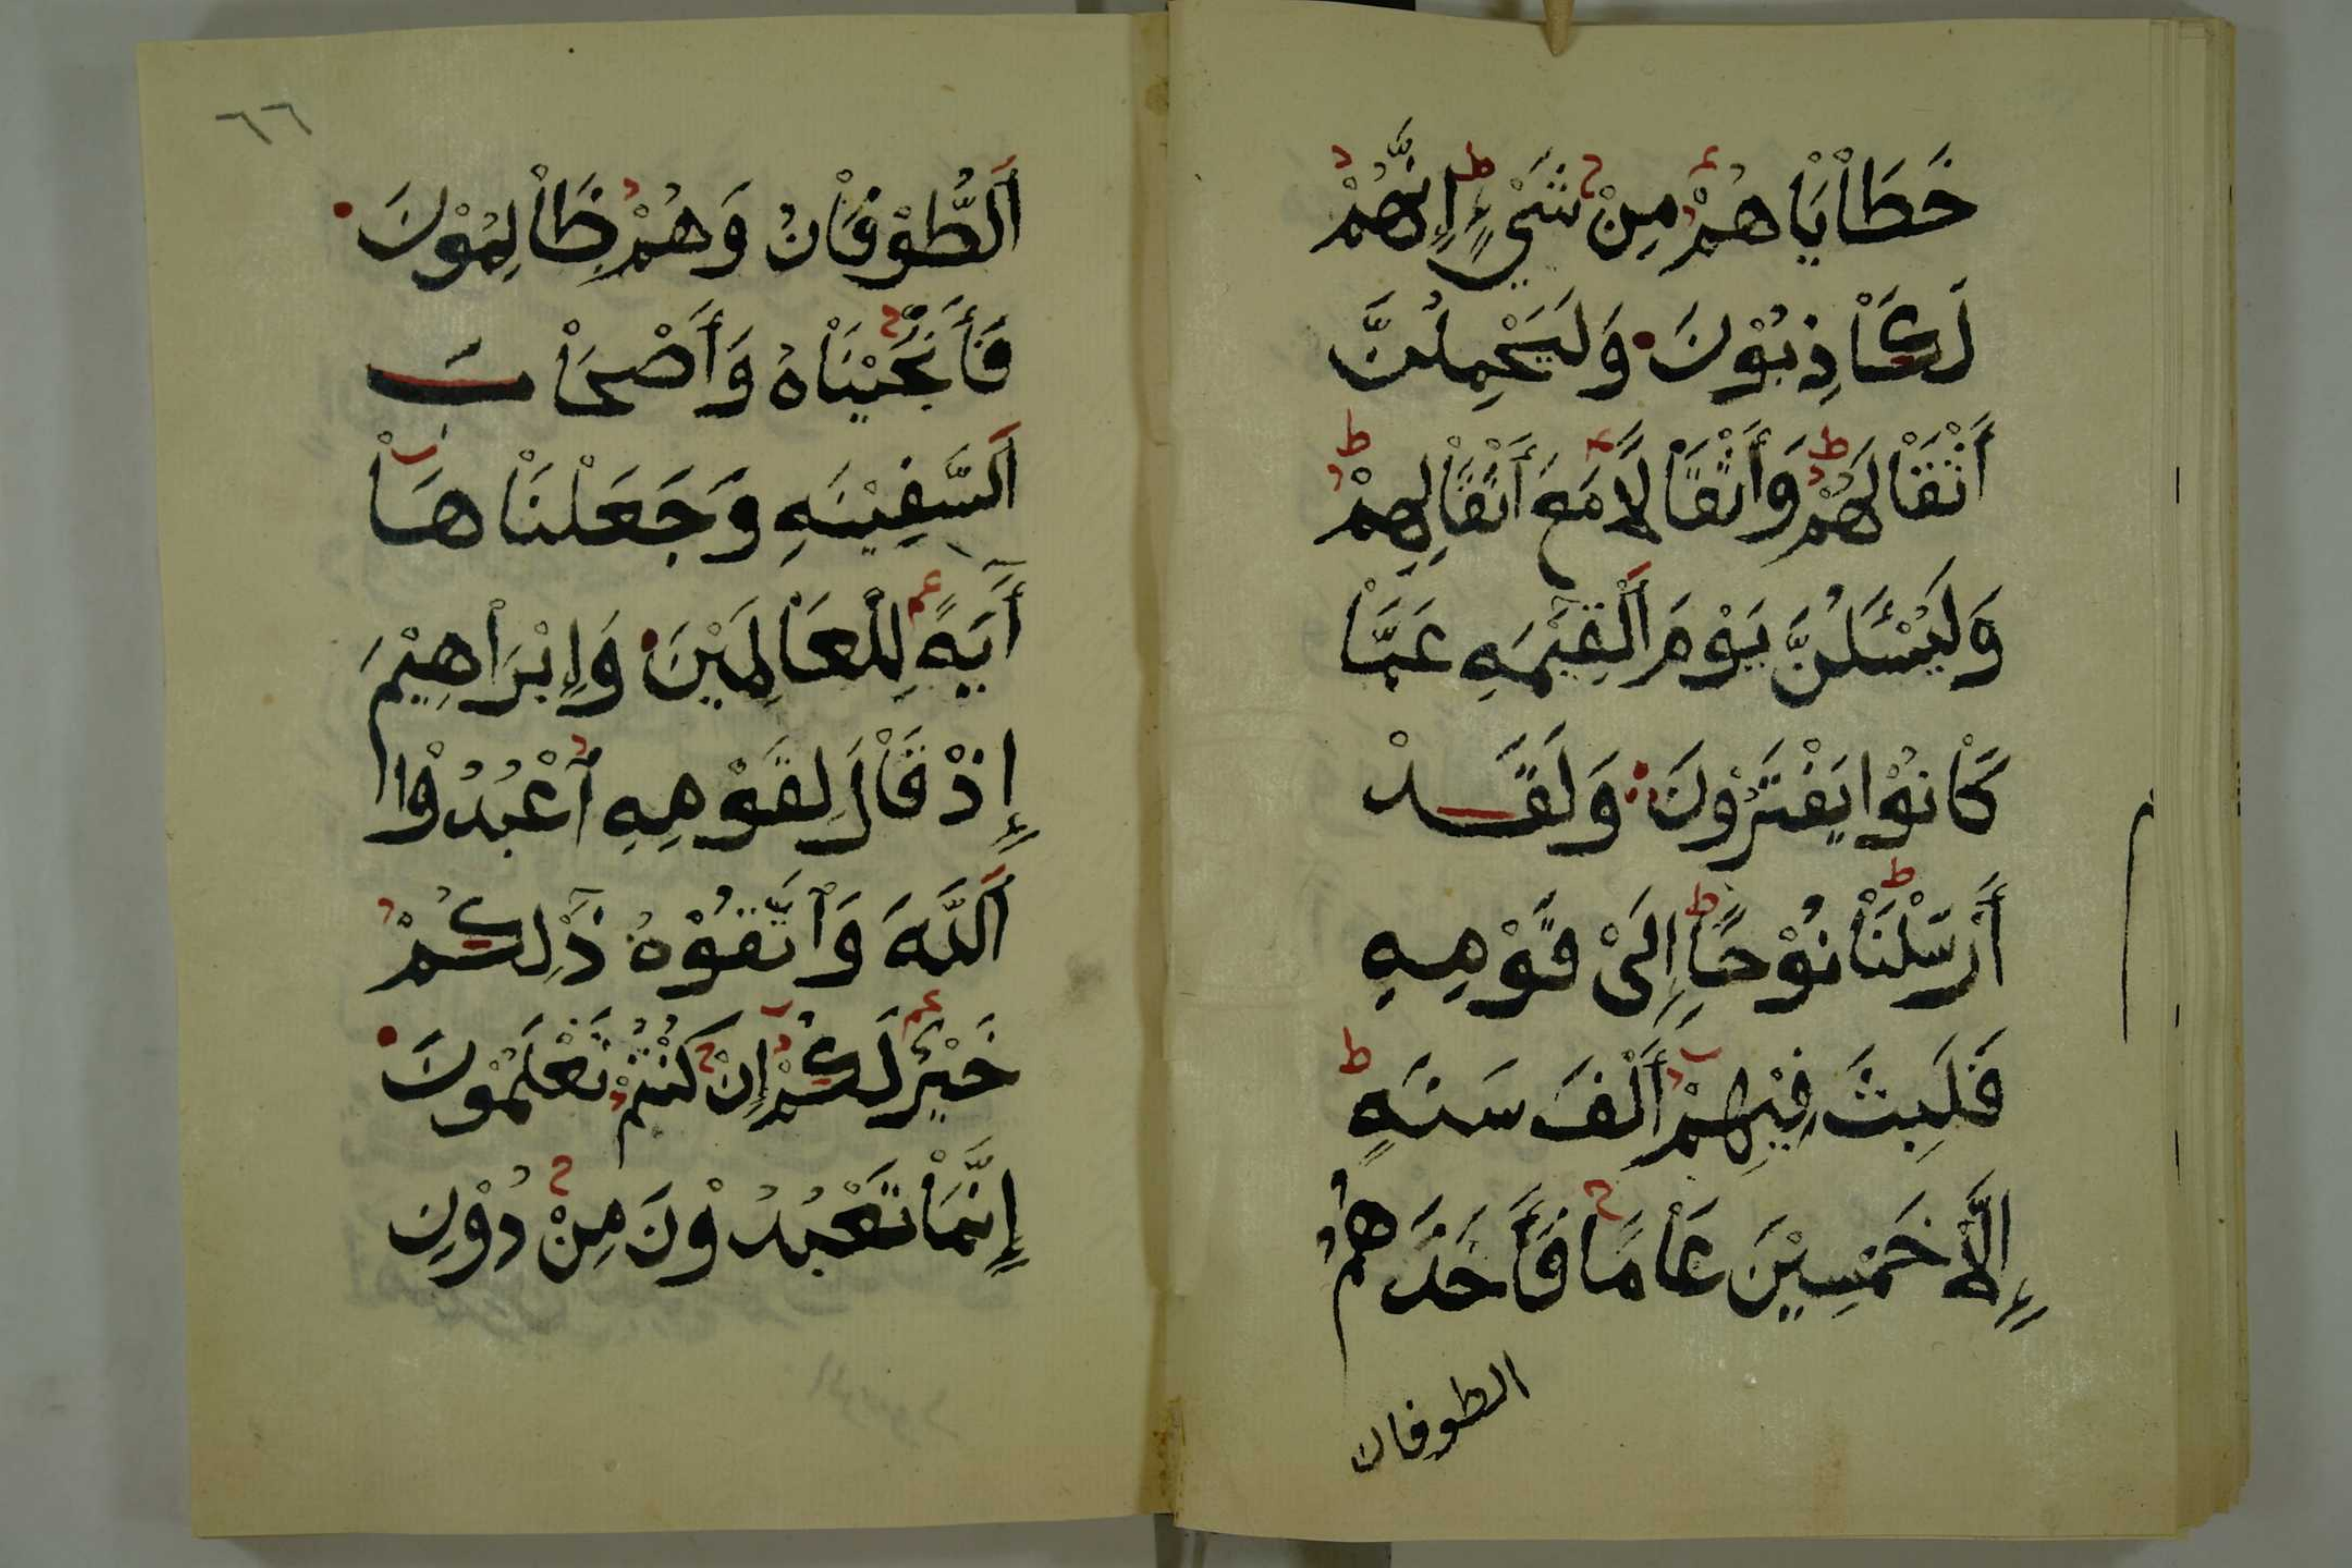 خَطَاْيَاْهُمْ مِنْ شَيْءٍ إِنَّهُمْ
لَكَاْذِبُوْنَ وَلَيَحْمِلُنَّ
أَثْقَاْلَهُمْ وَأَثْقَاْلًا مَعَ أَثْقَاْلِهِمْ
وَلَيُسْئَلُنَّ يَوْمَ اَلْقِيٰمَهِ عَمَّاْ
كَاْنُوْا يَفْتَرُوْنَ وَلَقَدْ
أَرْسَلْنَاْ نُوْحًا إِلَىْ قَوْمِهِ
فَلَبِثَ فِيْهِمْ أَلْفَ سَنَهٍ
إِلَّا خَمْسِيْنَ عَاْمًا فَأَخَذَهُمُ
الطوفان
٦٦
اَلطُّوْفَاْنُ وَهُمْ ظَاْلِمُوْنَ
فَأَنْجَيْنَاْهُ وَأَصْحَاْبَ
اَلسَّفِيْنَهِ وَجَعَلْنَاْهَاْ
آَيَهً لِلْعَاْلَمِيْنَ وَإِبْرَاْهِيْمَ
إِذْ قَاْلَ لِقَوْمِهِ اُعْبُدُوْا
اَللَّهَ وَاتَّقُوْهُ ذٰلِكُمْ
خَيْرٌ لَكُمْ إِنْ كُنْتُمْ تَعْلَمُوْنَ
إِنَّمَاْ تَعْبُدُوْنَ مِنْ دُوْنِ